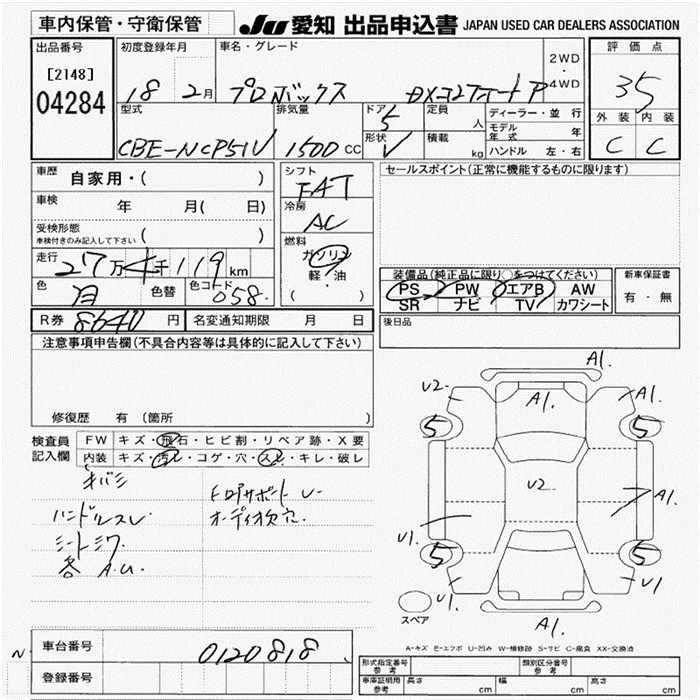 車内保管・守衛保管
JU 愛知 出品申込書 JAPAN USED CAR DEALERS ASSOCIATION
出品番号
[2148]
04284
初度登録年月
18 2月
車名・グレード
プロボックス DXコンフォートP
2WD
・
4WD
評価点
35
外装 内装
C C
型式
CBE-NCP51V
排気量
1500 CC
ドア
5
形状
V
定員
人
積載
kg
ディーラー・並行
モデル年式 年
ハンドル 左・右
車歴
自家用・( )
車検
年 月( 日)
受検形態
車検付きのみ記入して下さい ( )
走行
27万4千119km
色
月
色替
色コード
058.
シフト
FAT
冷房
AC
燃料
ガソリン
軽・油
( )
セールスポイント(正常に機能するものに限ります)
装備品(純正品に限り○をつけてください)
PS PW エアB AW
SR ナビ TV カワシート
新車保証書
有・無
R券 8640 円
名変通知期限 月 日
後日品
注意事項申告欄(不具合内容等は具体的に記入して下さい)
修復歴 有(箇所 )
検査員
記入欄
FW キズ・飛石・ヒビ割・リペア跡・X要
内装 キズ・汚レ・コゲ・穴・スレ・キレ・破レ
キバミ
ハンドルスレ
シートシワ
各 A.U.
トロアサポート U-
オーディオ欠品
A1.
U2.
A1.
A1.
5
5
U2.
A1.
U1.
5
5
U1.
U1.
A1.
スペア
A-キズ E-エクボ U-凹み W-補修跡 S-サビ C-腐食 XX-交換済
N
車台番号
0120818
登録番号
形式指定番号
参考
類別区分番号
参考
車庫証明用
参考
長さ cm
幅 cm
高さ cm